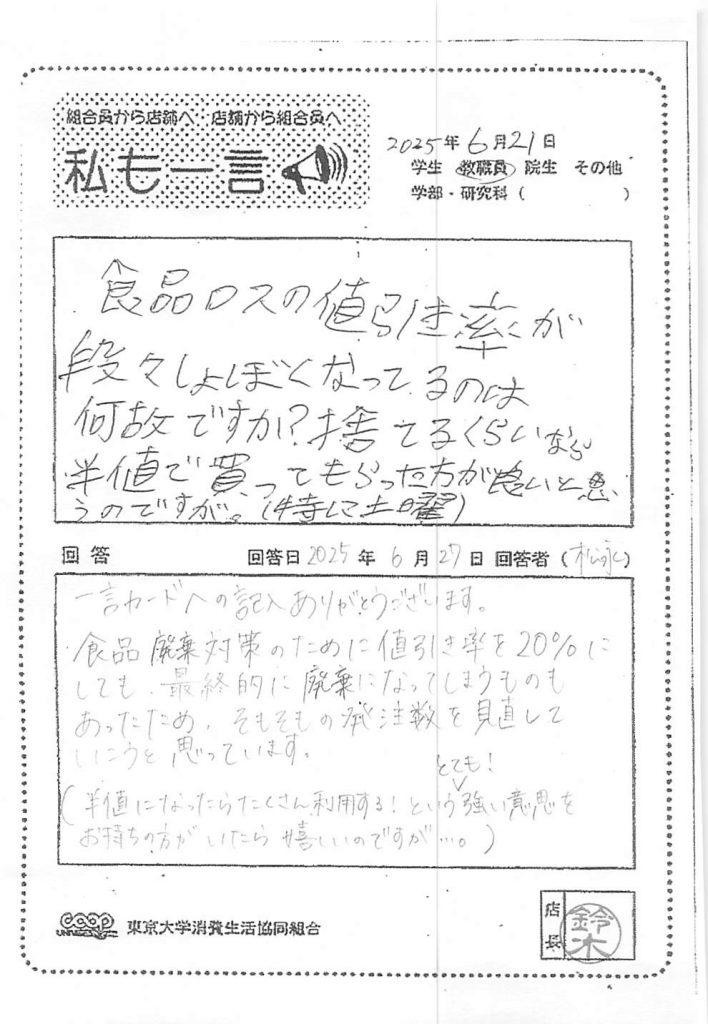 組合員から店舗へ 店舗から組合員へ
私も一言
2025年6月21日
学生 教職員 院生 その他
学部・研究科( )
食品ロスの値引き率が
段々しょぼくなってるのは
何故ですか?捨てるくらいなら
半値で買ってもらった方が良いと思
うのですが。(特に土曜)
回答 回答日 2025年 6月 27日 回答者 (松永)
一言カードへの記入ありがとうございます。
食品廃棄対策のために値引き率を20%に
しても、最終的に廃棄になってしまうものも
あったため、そもそもの発注数を見直して
いこうと思っています。
とても!
(半値になったらたくさん利用する!という強い意思を
お持ちの方がいたら嬉しいのですが…。)
coop 東京大学消費生活協同組合
店長 鈴木